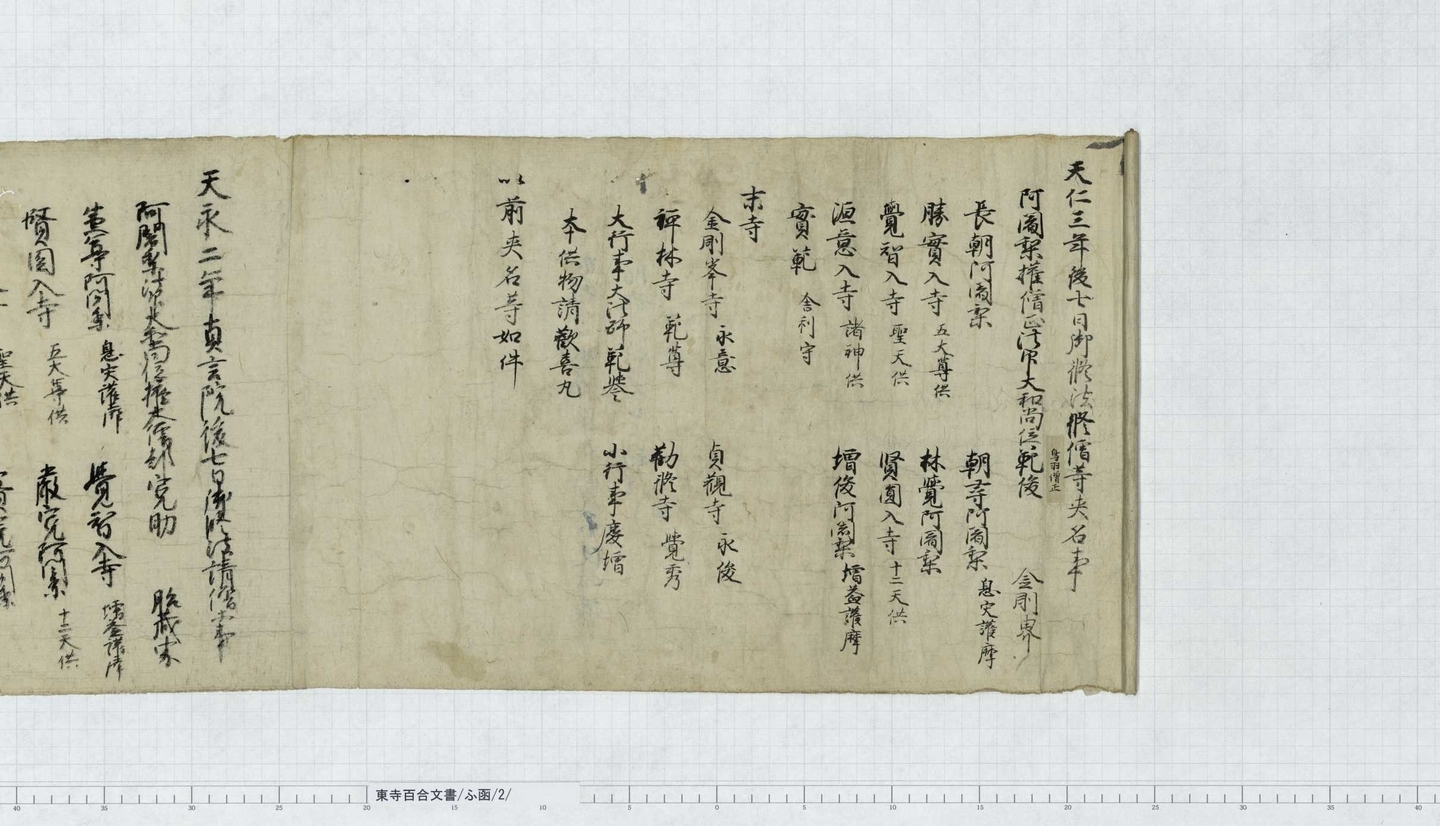 天仁三年後七日御修法修僧等夾名事
阿闍梨権僧正法印大和尚位範俊 鳥羽僧正 金剛界
長朝阿闍梨 朝尋阿闍梨 息災護摩
勝實入寺 五大尊供 林覺阿闍梨
覺智入寺 聖天供 賢圓入寺 十二天供
洄意入寺 諸神供 増俊阿闍梨 増益護摩
寶範 舎利守
末寺
金剛峯寺 永意 貞観寺 永俊
禅林寺 範尊 勧修寺 覺秀
大行事大法師範誉 小行事慶増
本供物請歓喜丸
以前夾名等如件
天永二年真言院後七日御修法請僧事
阿闍梨法印大和尚位権大僧都寛助 胎蔵界
阿闍梨 息災護摩 覺智入寺 増益護摩
賢圓入寺 五大尊供 嚴寛阿闍梨 十二天供
聖天供 阿闍梨
東寺百合文書/ふ函/2/
40 35 30 25 20 15 10 5 0 5 10 15 20 25 30 35 40